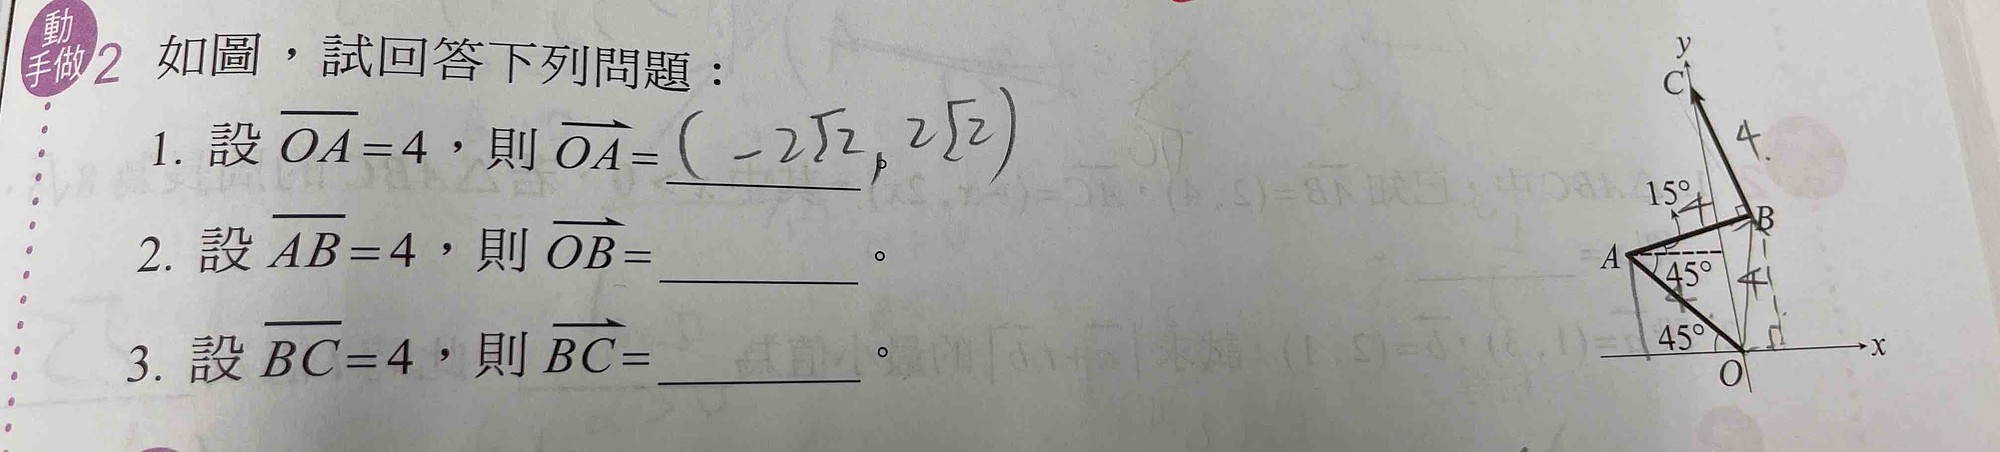 動手做 2 如圖，試回答下列問題：
1. 設 $\overline{OA}=4$，則 $\overrightarrow{OA}=$ $(-2\sqrt{2}, 2\sqrt{2})$ 。
2. 設 $\overline{AB}=4$，則 $\overrightarrow{OB}=$ ______ 。
3. 設 $\overline{BC}=4$，則 $\overrightarrow{BC}=$ ______ 。
y
C
4.
15° 4
B
A
45° 4
45°
x
O